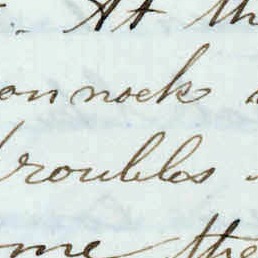 At th
onnock
troubles
me the